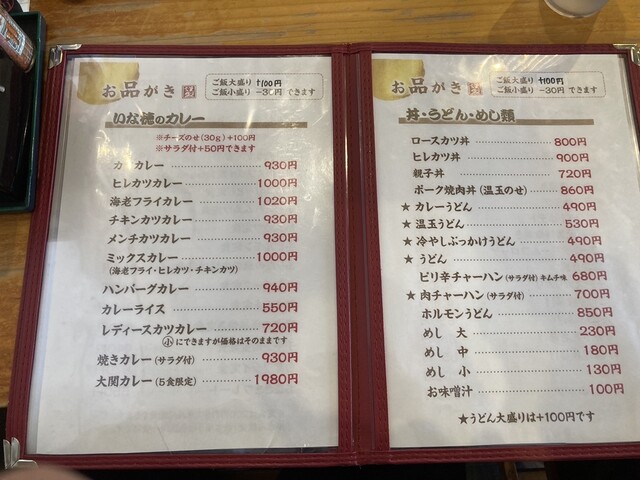 お品がき
ご飯大盛り +100円
ご飯小盛り -30円 できます
いな穂のカレー
※チーズのせ(30g)+100円
※サラダ付+50円できます
カツカレー 930円
ヒレカツカレー 1000円
海老フライカレー 1020円
チキンカツカレー 930円
メンチカツカレー 930円
ミックスカレー 1000円
(海老フライ・ヒレカツ・チキンカツ)
ハンバーグカレー 940円
カレーライス 550円
レディースカツカレー 720円
小にできますが価格はそのままです
焼きカレー(サラダ付) 930円
大関カレー(5食限定) 1980円
お品がき
ご飯大盛り +100円
ご飯小盛り -30円 できます
丼・うどん・めし類
ロースカツ丼 800円
ヒレカツ丼 900円
親子丼 720円
ポーク焼肉丼(温玉のせ) 860円
★カレーうどん 490円
★温玉うどん 530円
★冷やしぶっかけうどん 490円
★うどん 490円
ピリ辛チャーハン(サラダ付)キムチ味 680円
★肉チャーハン(サラダ付) 700円
ホルモンうどん 850円
めし 大 230円
めし 中 180円
めし 小 130円
お味噌汁 100円
★うどん大盛りは+100円です